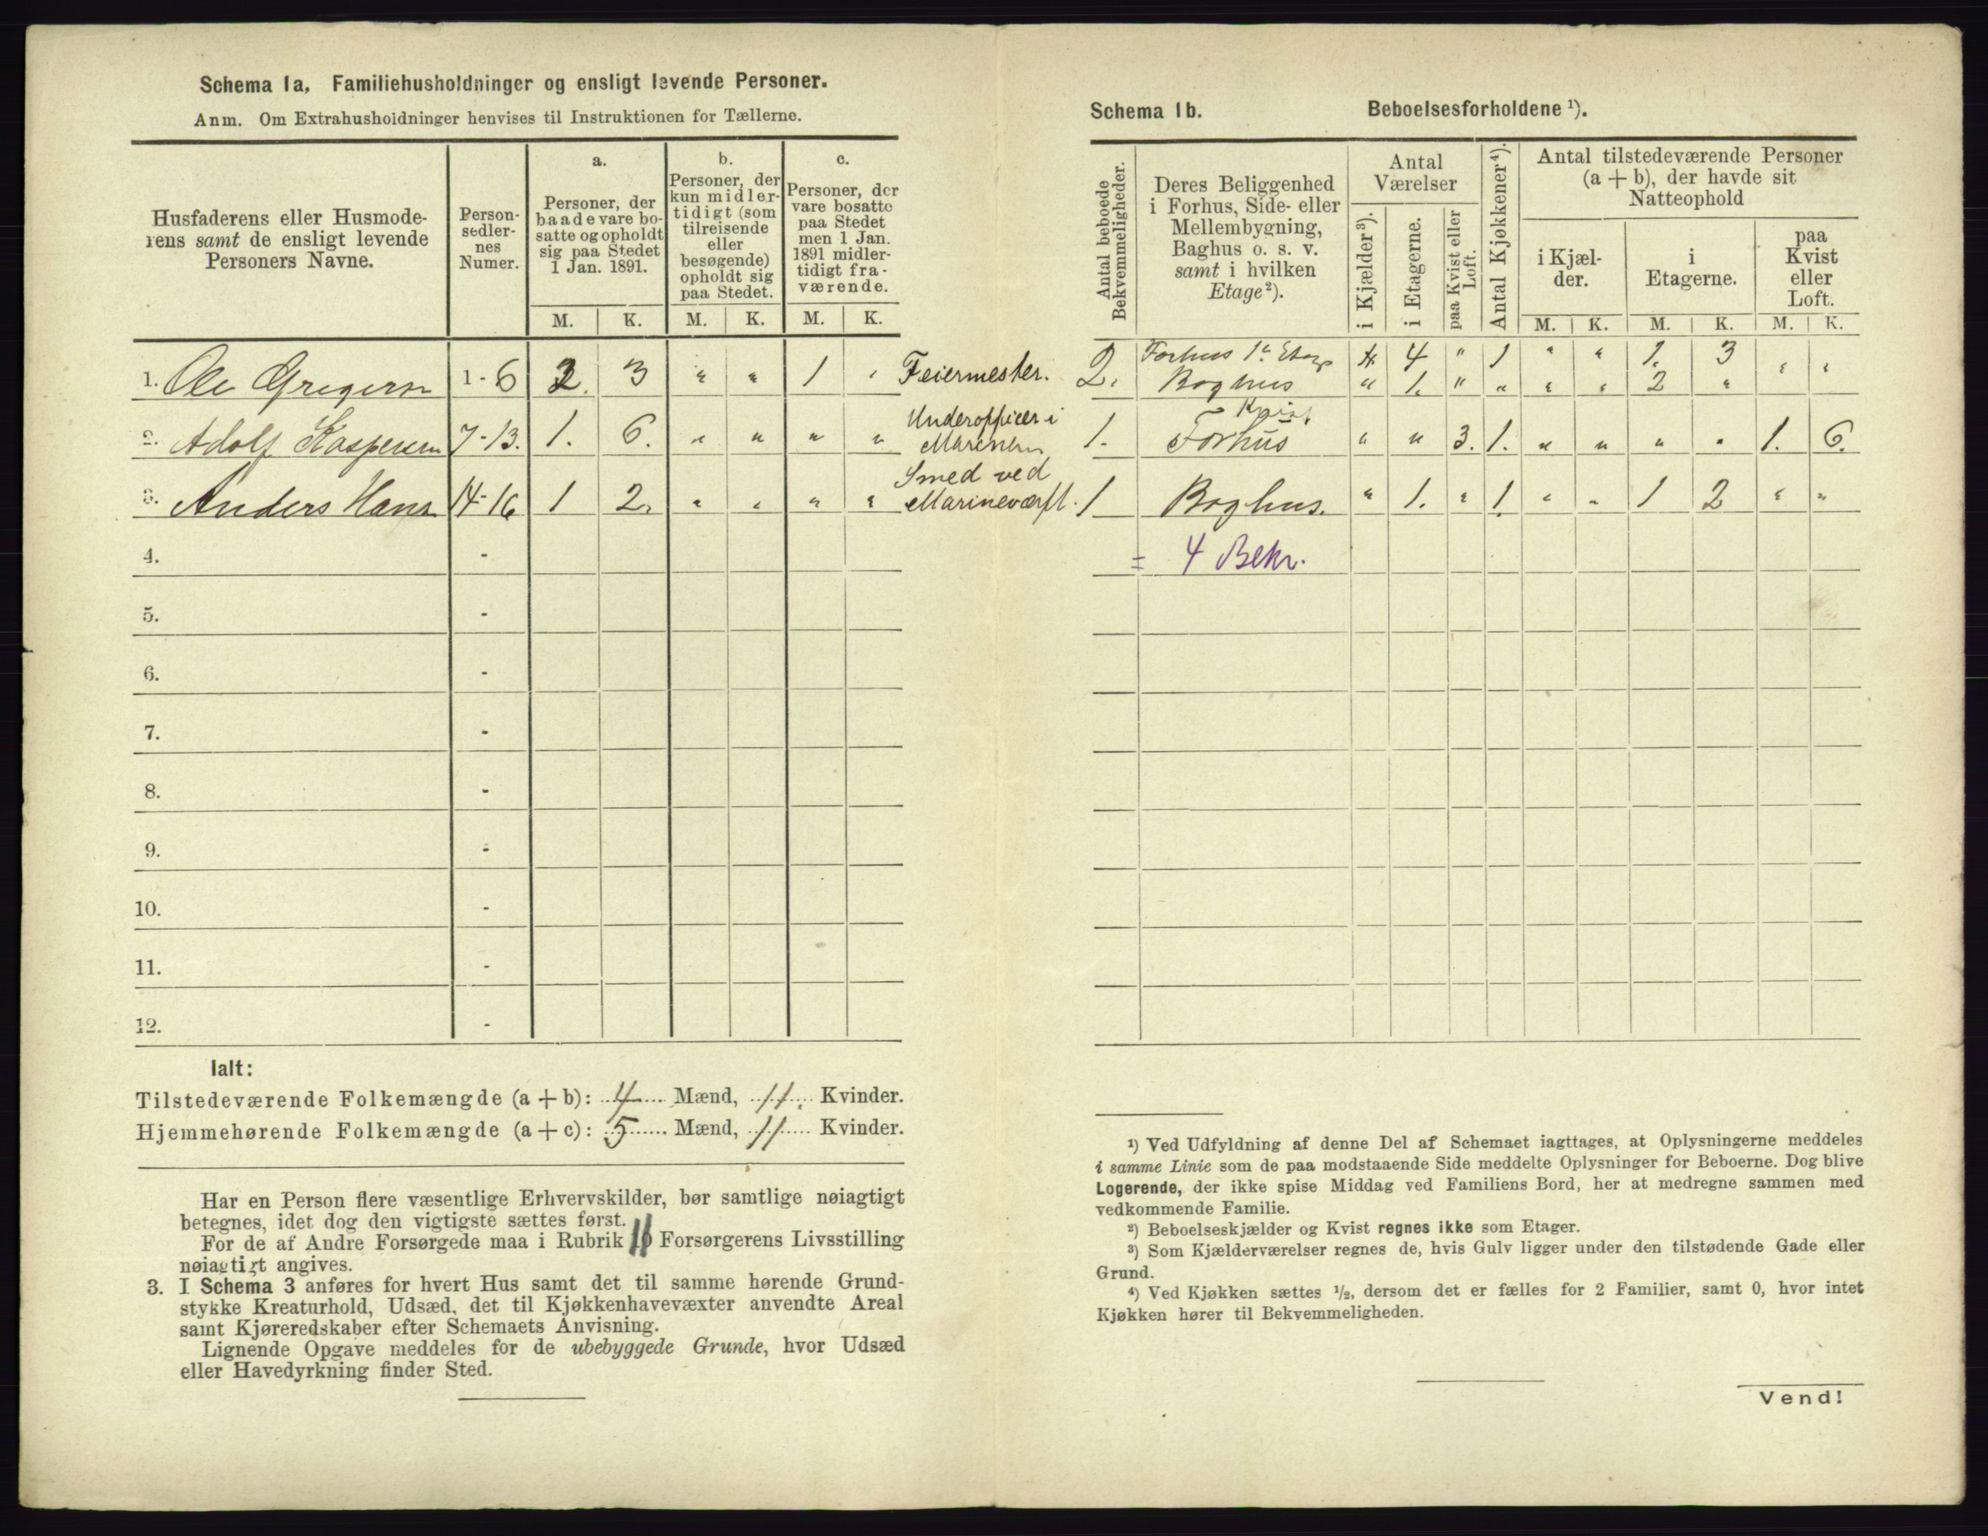 Schema 1a, Familiehusholdninger og ensligt levende Personer.
Anm. Om Extrahusholdninger henvises til Instruktionen for Tællerne.
Husfaderens eller Husmoderens samt de ensligt levende Personers Navne.
Personsedlernes Numer.
a.
Personer, der baade vare bosatte og opholdt sig paa Stedet 1 Jan. 1891.
b.
Personer, der kun midlertidigt (som tilreisende eller besøgende) opholdt sig paa Stedet.
c.
Personer, der vare bosatte paa Stedet men 1 Jan. 1891 midlertidigt fraværende.
M. K. M. K. M. K.
1. Ole Gregersn 1-6 2. 3 " " 1 " Feiermester.
2. Adolf Kaspersen 7-13. 1. 6. " " " " Underofficer i Marenen
3. Anders Hans 14-16 1 2. " " " " Smed ved Marineværft.
4. -
5. -
6. -
7. -
8. -
9. -
10. -
11. -
12. -
Ialt:
Tilstedeværende Folkemængde (a + b): 4 Mænd, 11. Kvinder.
Hjemmehørende Folkemængde (a + c): 5 Mænd, 11 Kvinder.
Har en Person flere væsentlige Erhvervskilder, bør samtlige nøiagtigt
betegnes, idet dog den vigtigste sættes først.
For de af Andre Forsørgede maa i Rubrik Forsørgerens Livsstilling
nøiagtigt angives.
3. I Schema 3 anføres for hvert Hus samt det til samme hørende Grund-
stykke Kreaturhold, Udsæd, det til Kjøkkenhavevæxter anvendte Areal
samt Kjøreredskaber efter Schemaets Anvisning.
Lignende Opgave meddeles for de ubebyggede Grunde, hvor Udsæd
eller Havedyrkning finder Sted.
Schema 1b. Beboelsesforholdene ¹).
Antal beboede Bekvemmeligheder.
Deres Beliggenhed i Forhus, Side- eller Mellembygning, Baghus o. s. v. samt i hvilken Etage²).
Antal Værelser
i Kjælder³).
i Etagerne.
paa Kvist eller Loft.
Antal Kjøkkener⁴).
Antal tilstedeværende Personer (a + b), der havde sit Natteophold
i Kjælder.
i Etagerne.
paa Kvist eller Loft.
M. K. M. K. M. K.
2. Forhus 1e Etage " 4 " 1 " " 1. 3 " "
Baghus " 1. " " " " 2 "
1. Forhus Kvist " " 3. 1. " " " " 1. 6.
1 Baghus. " 1. " 1. " " 1 2 " "
= 4 Bekv.
¹) Ved Udfyldning af denne Del af Schemaet iagttages, at Oplysningerne meddeles
i samme Linie som de paa modstaaende Side meddelte Oplysninger for Beboerne. Dog blive
Logerende, der ikke spise Middag ved Familiens Bord, her at medregne sammen med
vedkommende Familie.
²) Beboelseskjælder og Kvist regnes ikke som Etager.
³) Som Kjælderværelser regnes de, hvis Gulv ligger under den tilstødende Gade eller
Grund.
⁴) Ved Kjøkken sættes ½, dersom det er fælles for 2 Familier, samt 0, hvor intet
Kjøkken hører til Bekvemmeligheden.
Vend!